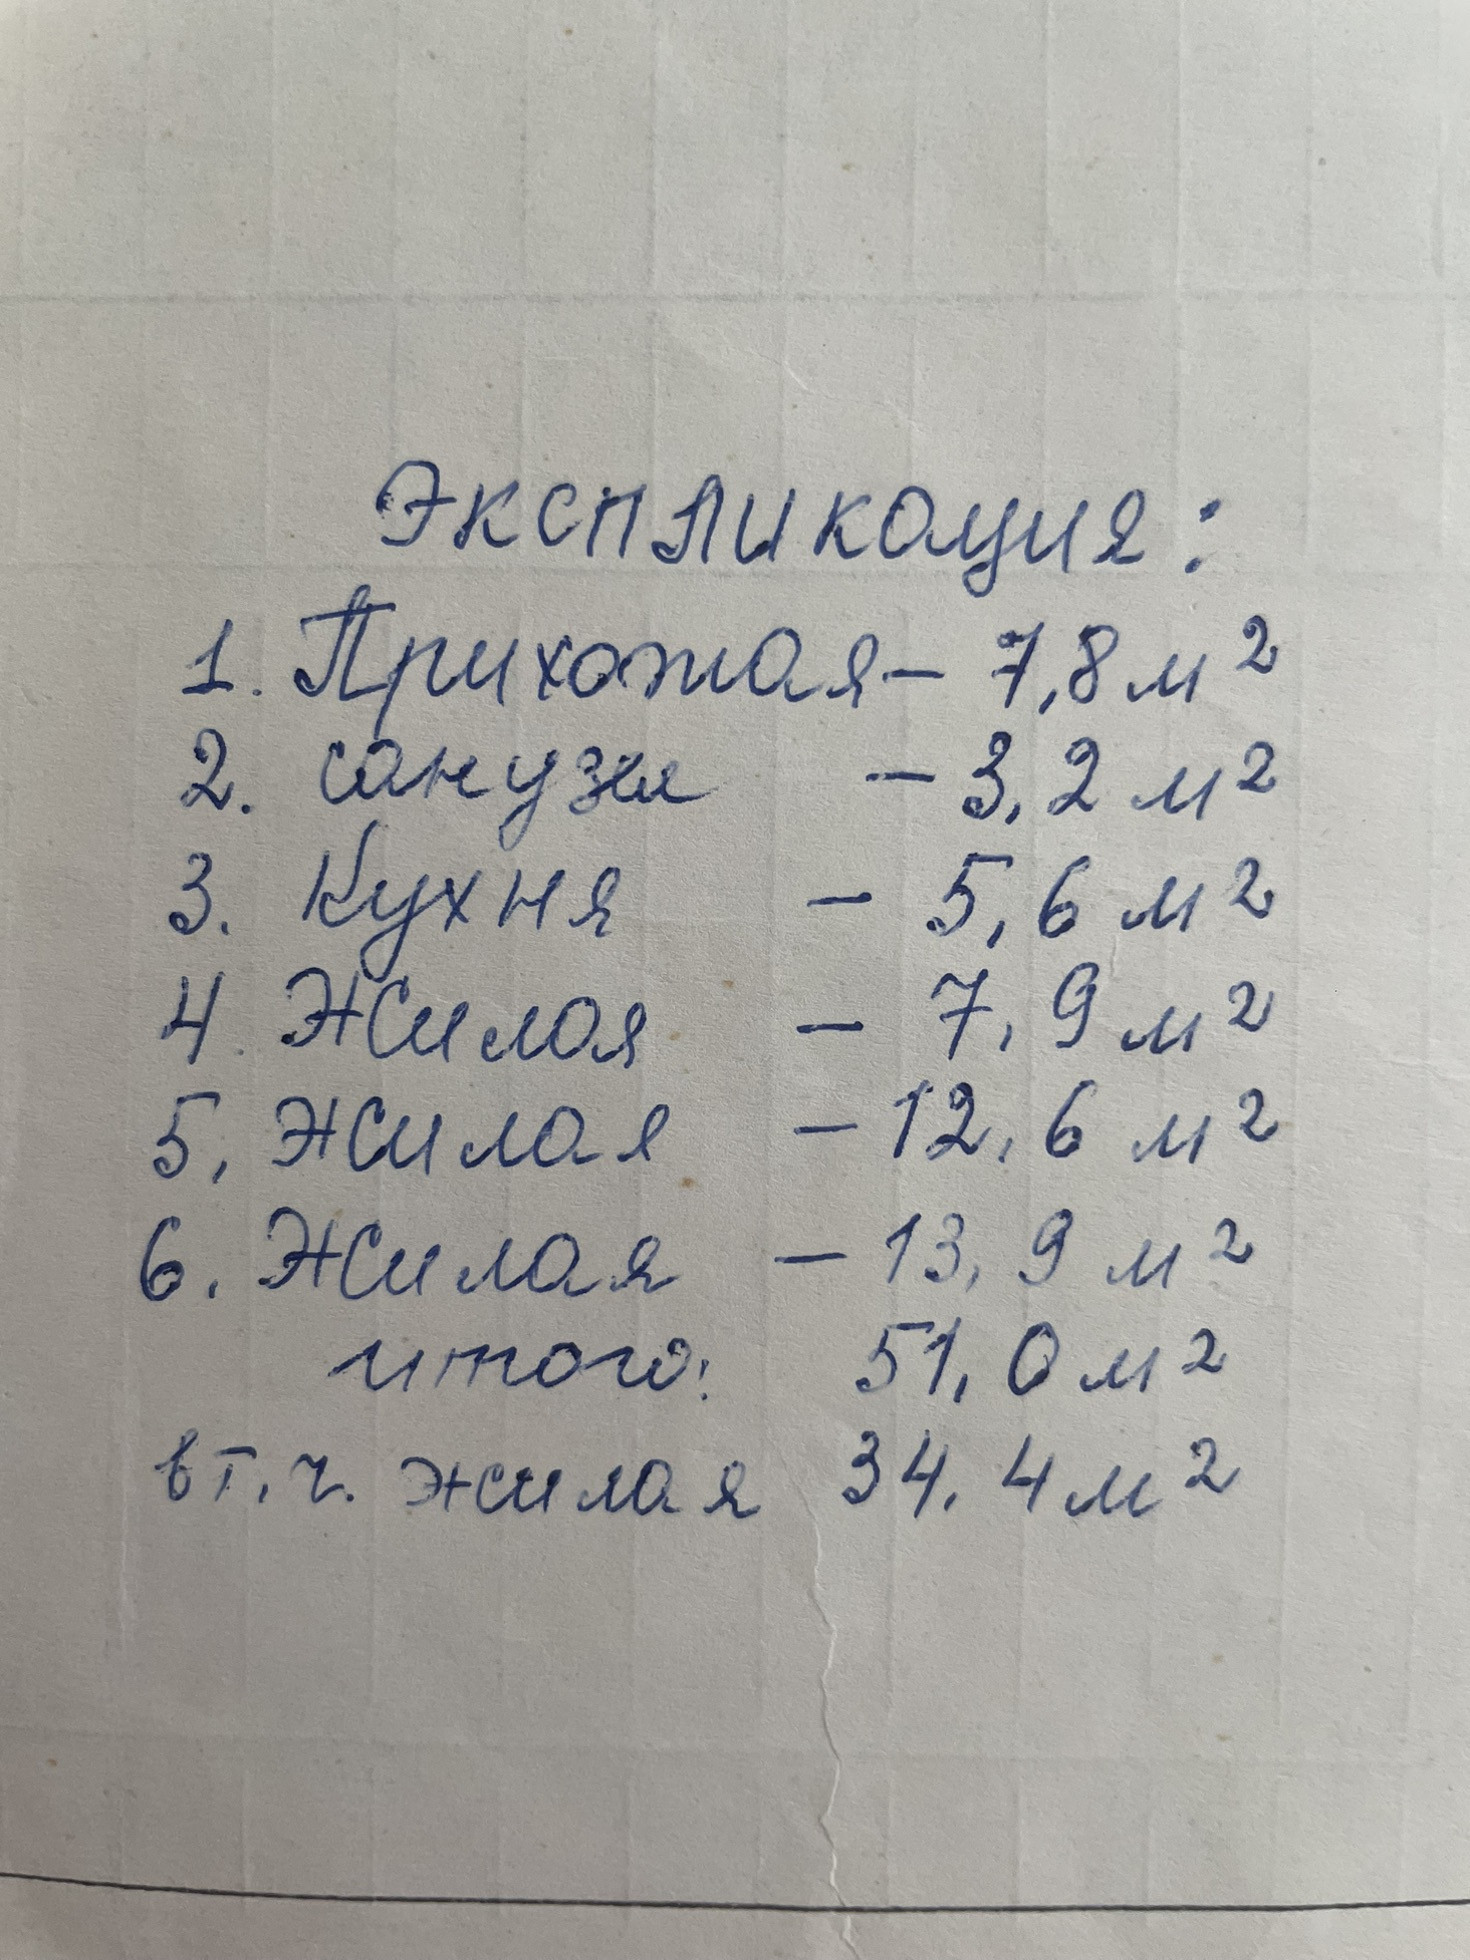 Экспликация:
1. Прихожая - 7,8 м²
2. санузел - 3,2 м²
3. Кухня - 5,6 м²
4. Жилая - 7,9 м²
5. Жилая - 12,6 м²
6. Жилая - 13,9 м²
итого: 51,0 м²
в т.ч. жилая 34,4 м²